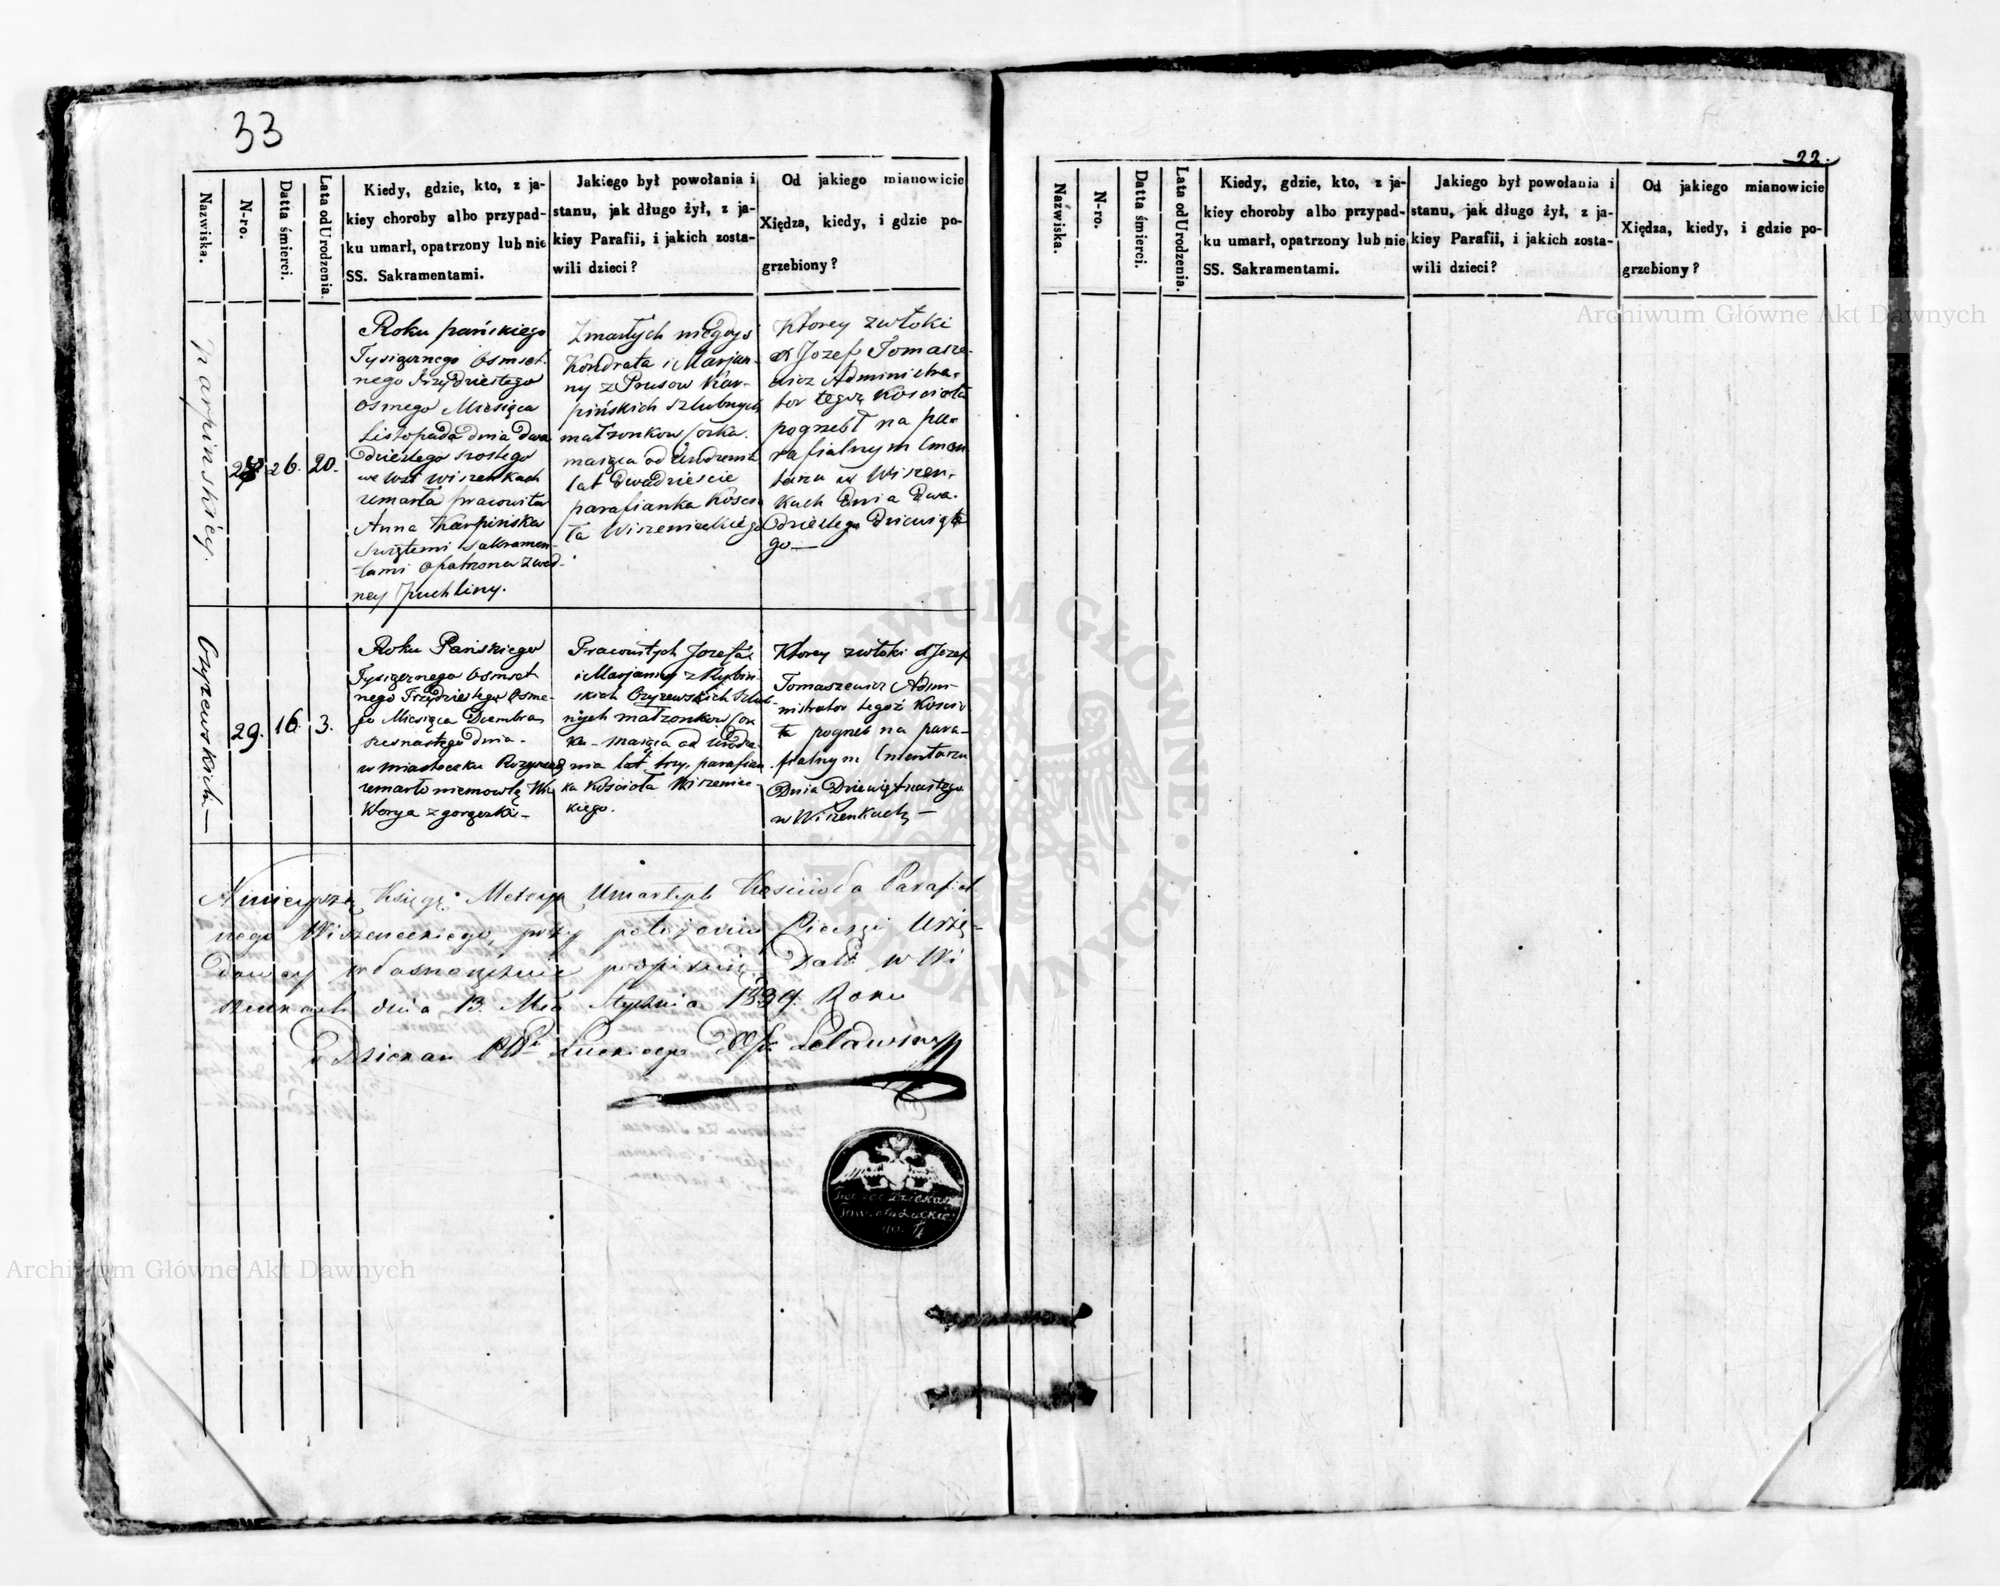 33
Nazwiska.
N-ro.
Datta śmierci.
Lata od Urodzenia.
Kiedy, gdzie, kto, z ja-
kiey choroby albo przypad-
ku umarł, opatrzony lub nie
SS. Sakramentami.
Jakiego był powołania i
stanu, jak długo żył, z ja-
kiey Parafii, i jakich zosta-
wili dzieci?
Od jakiego mianowicie
Xiędza, kiedy, i gdzie po-
grzebiony?
Karpinskiey.
28
26.
20.
Roku pańskiego
Tysiącznego Osmset-
nego Trzydziestego
Osmego Miesiąca
Listopada dnia Dwa
dziestego szostego
we Wsi Wiszenkach
umarła pracowita
Anna Karpińska
Swiętemi Sakramen-
tami Opatrzona z wod-
ney puchliny.
Zmarłych niegdyś
Kondrata i Marjan-
ny z Prusow Kar-
pińskich szlubnych
małżonkow Corka.
maiąca od Urodzenia
lat Dwadzieście
parafianka Koscio
ła Wiszenieckiego
Ktorey zwłoki
X Jozef Tomasze-
wicz Administra-
tor tegoż Kościoła
pogrzebł na pa-
rafialnym Cmen
tarzu w Wiszen-
kach Dnia Dwa-
dziestego Dziewiąte
go—
Czyżewskich—
29.
16.
3.
Roku Pańskiego
Tysiącznego Osmset
nego Trzydziestego Osme-
go Miesiąca Decembra
szesnastego dnia-
w miasteczku Rożyszcz
umarło niemowlę Wi
ktorya z gorączki-
Pracowitych Jozefa
i Marjanny z Rybin-
skich Czyżewskich szlub-
nych małżonkow Cor
ka- maiąca od Urodze-
nia lat trzy, parafian
ka Kościoła Wiszeniec-
kiego.
Ktorey zwłoki X Jozef
Tomaszewicz Admi-
nistrator tegoż Koscio
ła pogrzeb na para-
fialnym Cmentarzu
Dnia Dziewiętnastego
w Wiszenkach—
Ninieyszą Księgę Metryk Umarłych Kościoła Parafial
nego Wiszenieckiego, przy położeniu Pieczęci Urzę-
dowey własnoręcznie podpisuię. Dało w Wi
szenkach dnia 13. Mca Stycznia 1839. Roku
Dziekan Ptu Łuckiego
Pieczęć Dziekana
Powiatu Łuckie
go.
22.
Nazwiska.
N-ro.
Datta śmierci.
Lata od Urodzenia.
Kiedy, gdzie, kto, z ja-
kiey choroby albo przypad-
ku umarł, opatrzony lub nie
SS. Sakramentami.
Jakiego był powołania i
stanu, jak długo żył, z ja-
kiey Parafii, i jakich zosta-
wili dzieci?
Od jakiego mianowicie
Xiędza, kiedy, i gdzie po-
grzebiony?
Archiwum Główne Akt Dawnych
Archiwum Główne Akt Dawnych
ARCHIWUM GŁÓWNE AKT DAWNYCH